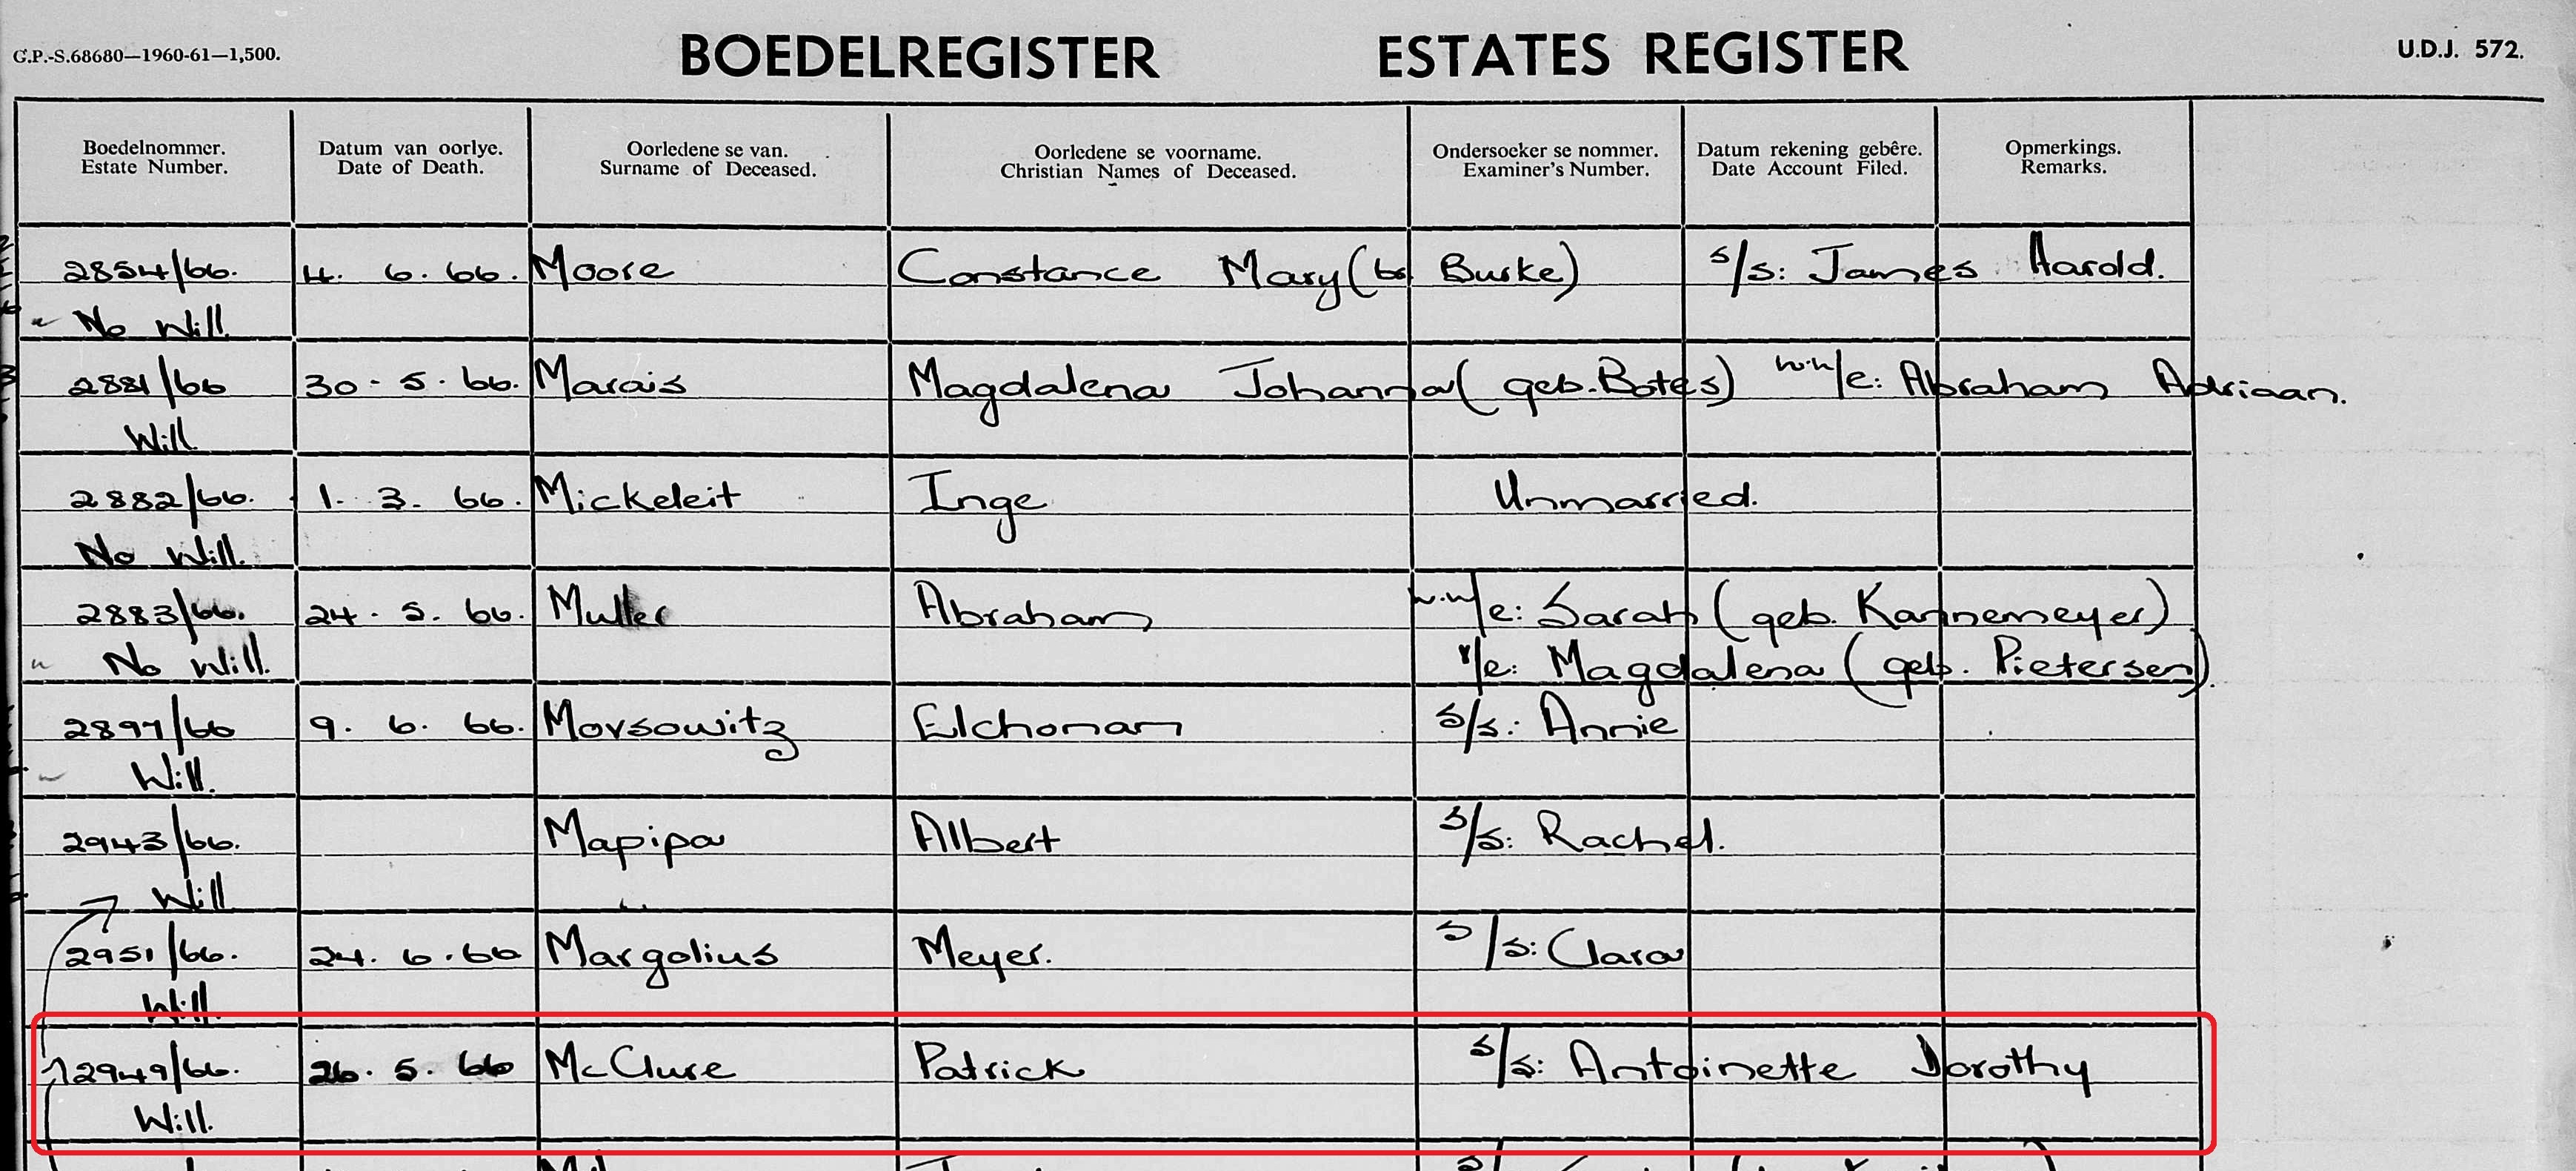 G.P.-S.68680—1960-61—1,500.
BOEDELREGISTER ESTATES REGISTER
U.D.J. 572.
Boedelnommer. Estate Number.
Datum van oorlye. Date of Death.
Oorledene se van. Surname of Deceased.
Oorledene se voorname. Christian Names of Deceased.
Ondersoeker se nommer. Examiner's Number.
Datum rekening gebêre. Date Account Filed.
Opmerkings. Remarks.
2854/66. 4. 6. 66. Moore Constance Mary (bn Burke) s/s: James Harold.
No Will.
2881/66 30. 5. 66. Marais Magdalena Johanna (geb. Botes) w.n/e: Abraham Adriaan.
Will
2882/66. 1. 3. 66. Mickeleit Inge Unmarried.
No Will.
2883/66. 24. 5. 66. Muller Abraham w.w/e: Sarah (geb. Kannemeyer)
No Will. v/e: Magdalena (geb. Pietersen).
2897/66 9. 6. 66. Movsowitz Elchonan s/s: Annie
Will.
2943/66. Mapipa Albert s/s: Rachel.
Will
2951/66. 24. 6. 66 Margolius Meyer. s/s: Clara
Will.
2949/66. 26. 5. 66 McClure Patrick s/s: Antoinette Dorothy
Will.